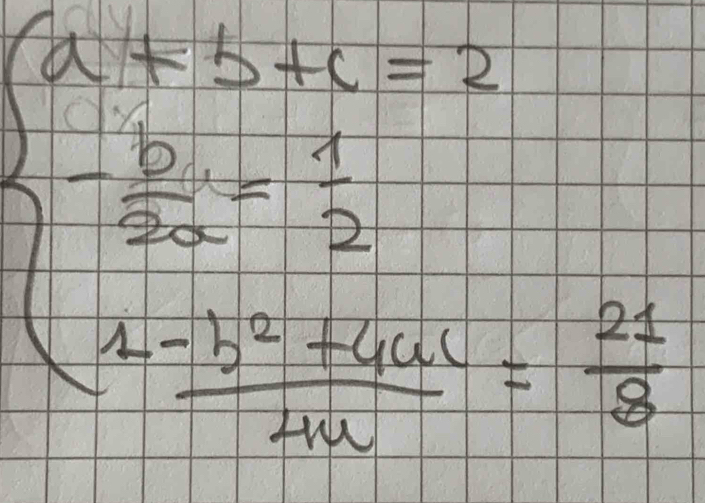 a + b + c = 2
- b/2a = 1/2
(1 - b² + 4ac)/4a = 21/8